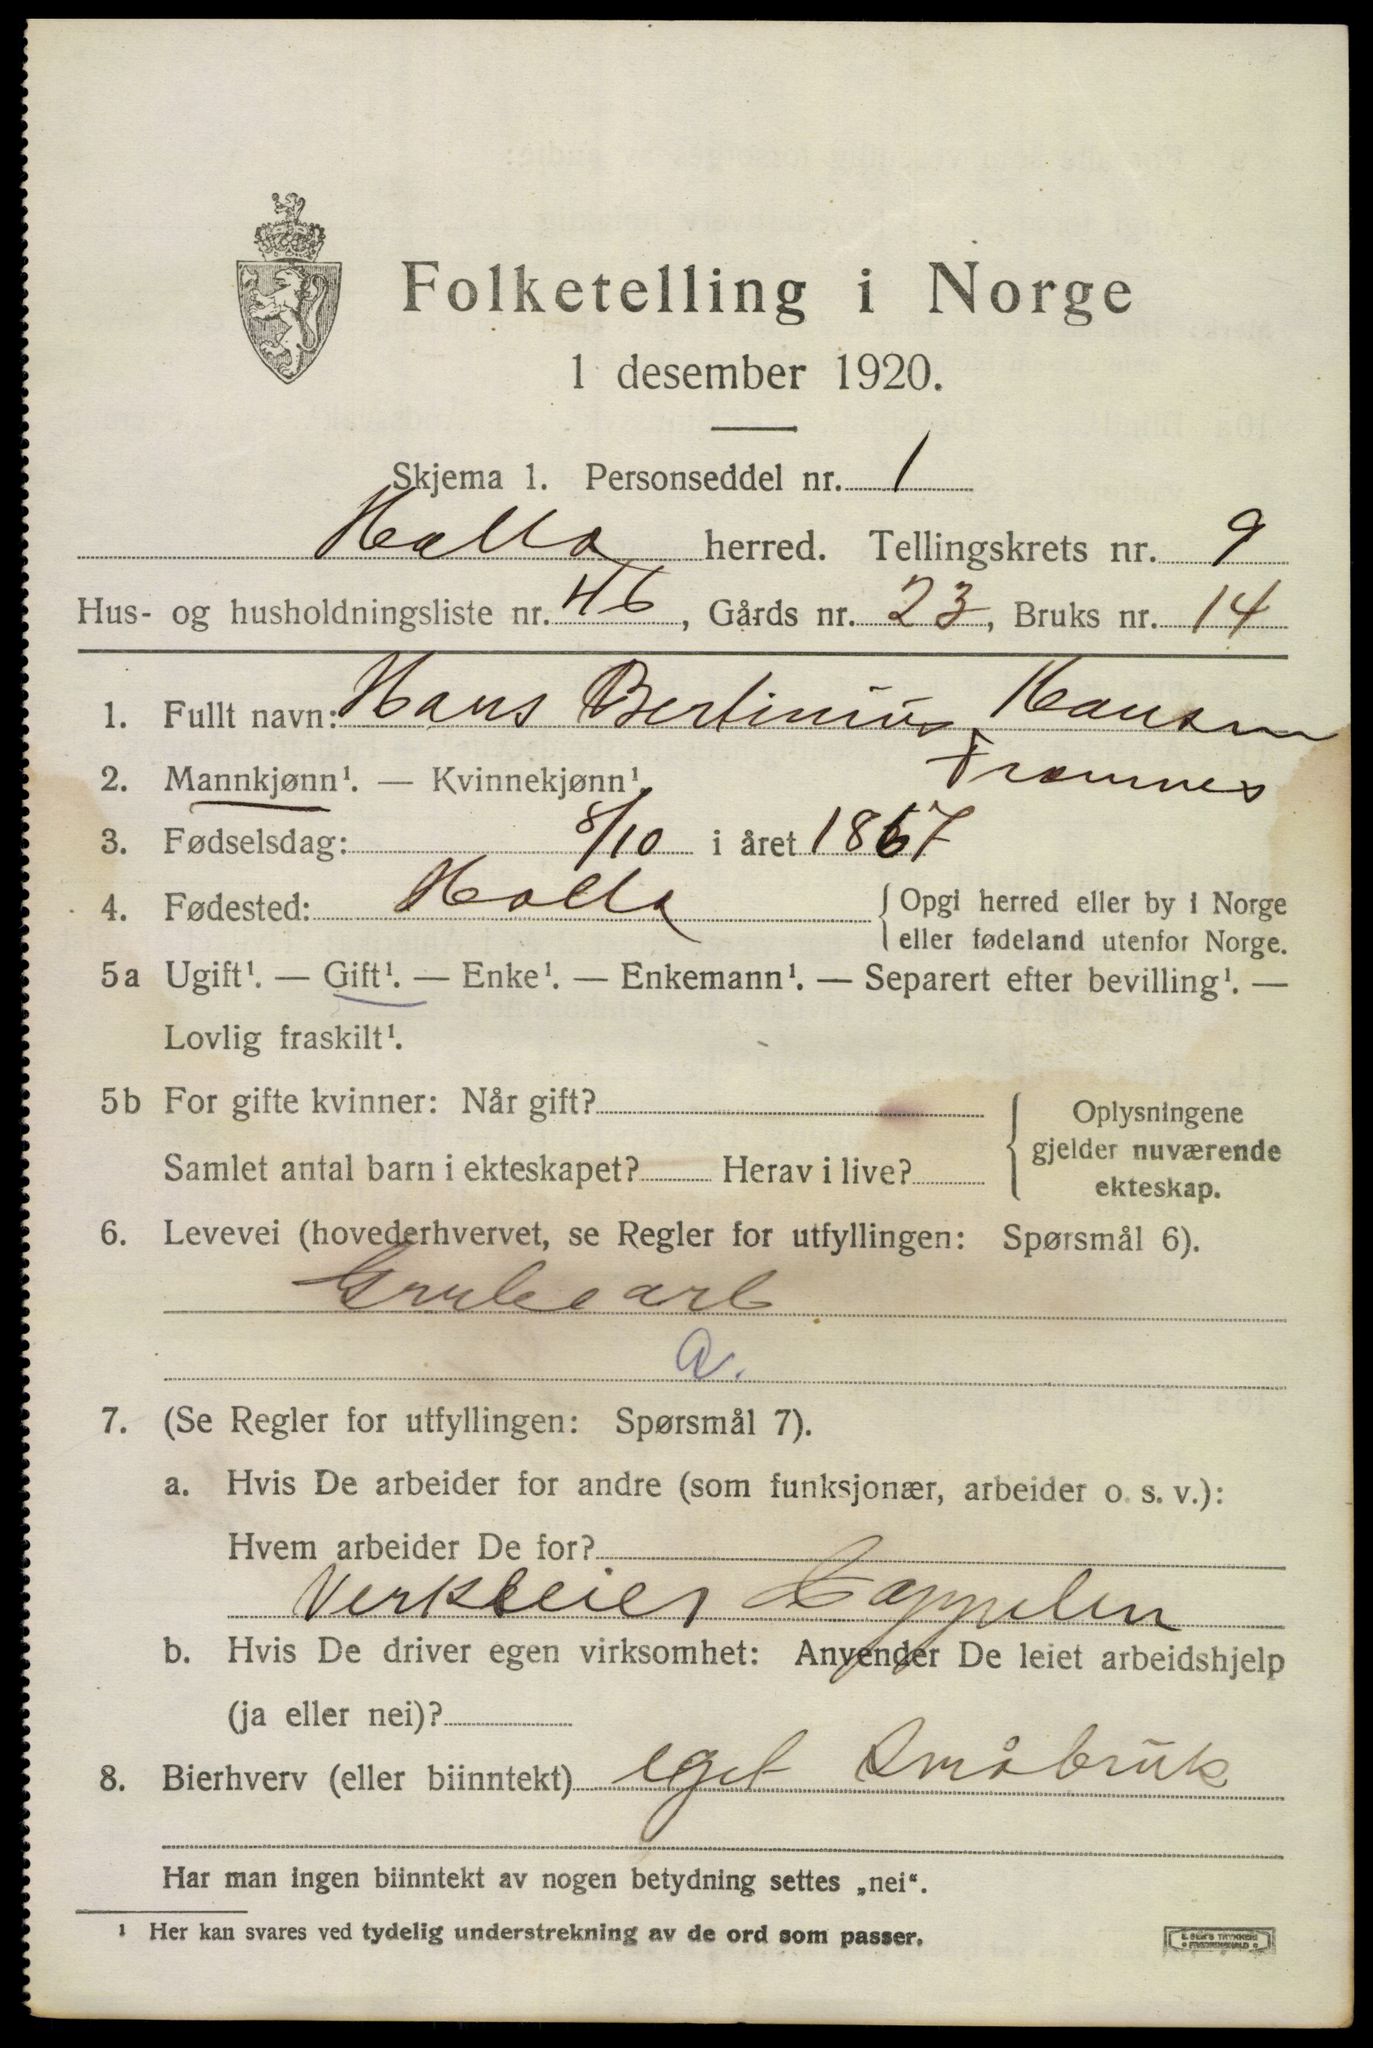 Folketelling i Norge
1 desember 1920.
Skjema 1. Personseddel nr. 1
Holla herred. Tellingskrets nr. 9
Hus- og husholdningsliste nr. 46, Gårds nr. 23, Bruks nr. 14
1. Fullt navn: Hans Bertinius Hansen
Framnes
2. Mannkjønn¹. — Kvinnekjønn¹.
3. Fødselsdag: 8/10 i året 1867
4. Fødested: Holla { Opgi herred eller by i Norge
eller fødeland utenfor Norge.
5a Ugift¹. — Gift¹. — Enke¹. — Enkemann¹. — Separert efter bevilling¹. —
Lovlig fraskilt¹.
5b For gifte kvinner: Når gift?
Samlet antal barn i ekteskapet? Herav i live?
{ Oplysningene
gjelder nuværende
ekteskap.
6. Levevei (hovederhvervet, se Regler for utfyllingen: Spørsmål 6).
Grubearb
a.
7. (Se Regler for utfyllingen: Spørsmål 7).
a. Hvis De arbeider for andre (som funksjonær, arbeider o. s. v.):
Hvem arbeider De for?
Verkseier Cappelen
b. Hvis De driver egen virksomhet: Anvender De leiet arbeidshjelp
(ja eller nei)?
8. Bierhverv (eller biinntekt) eget Småbruk
Har man ingen biinntekt av nogen betydning settes „nei“.
¹ Her kan svares ved tydelig understrekning av de ord som passer.